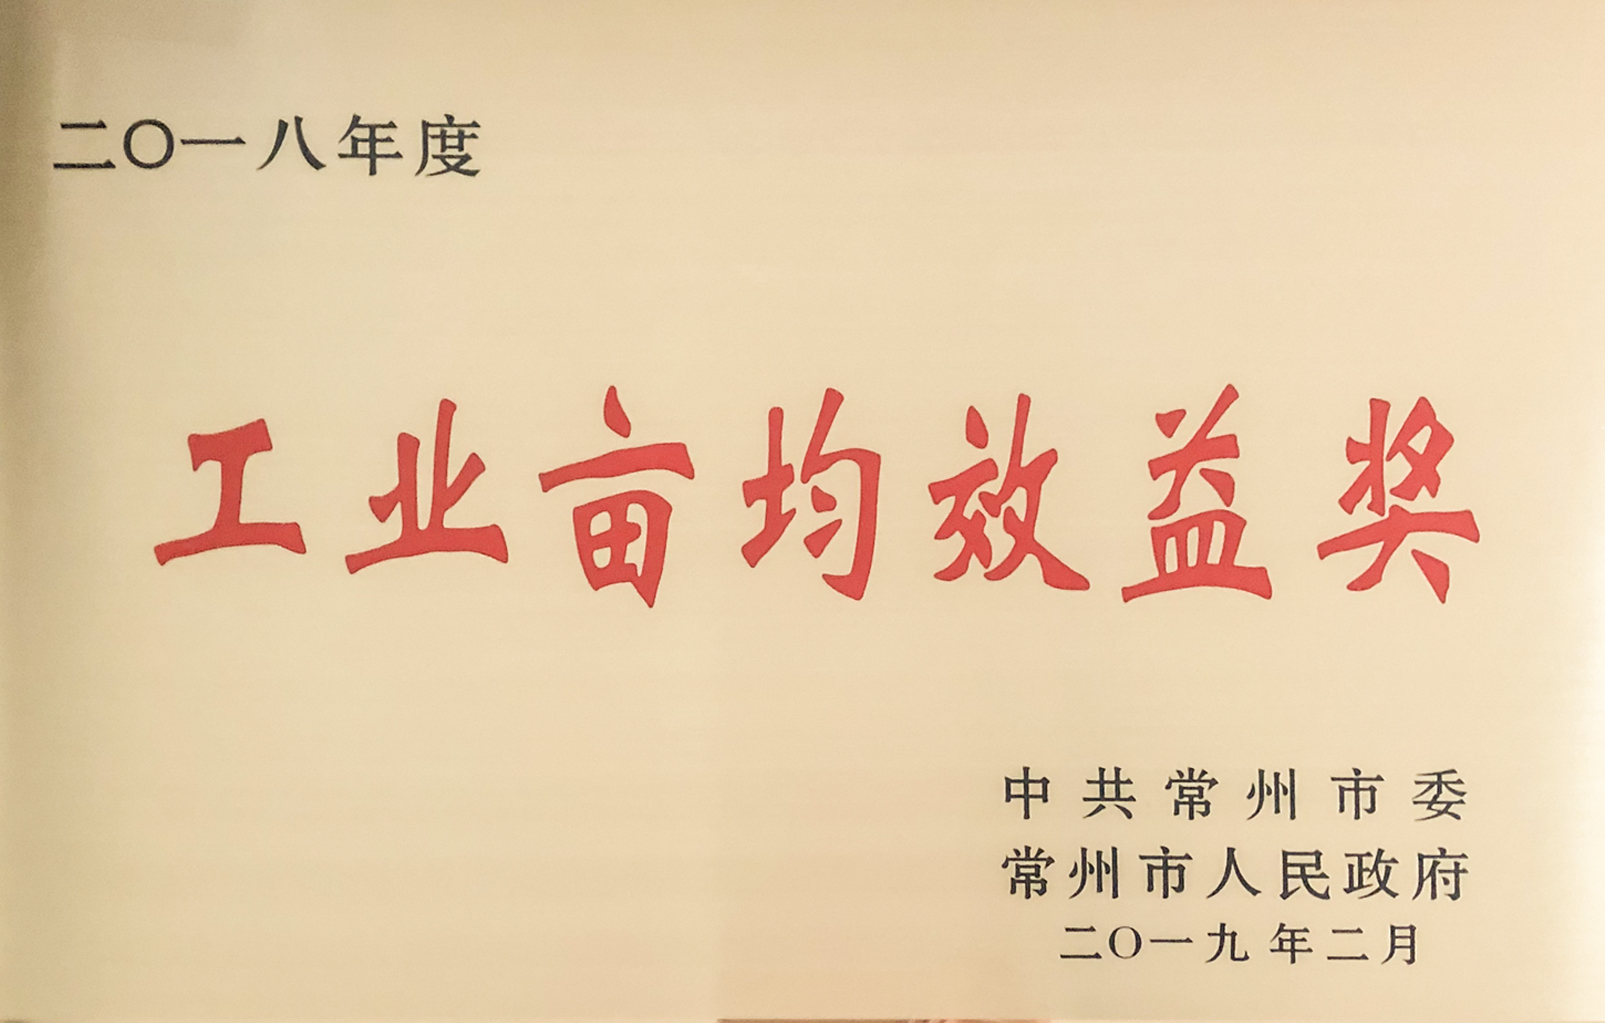 二〇一八年度
工业亩均效益奖
中共常州市委
常州市人民政府
二〇一九年二月